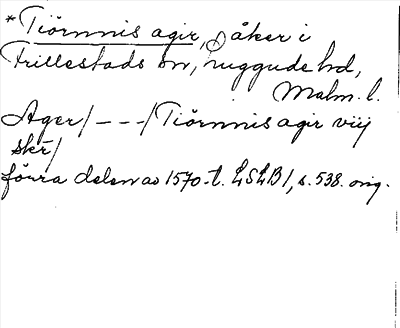 *Tiörnnis agir, åker i
Frillestads sn, Luggude hd,
Malm. l.
Ager/---/Tiörnnis agir viij
skr/
förra delen av 1570-t. LSLB1, s. 538. orig.